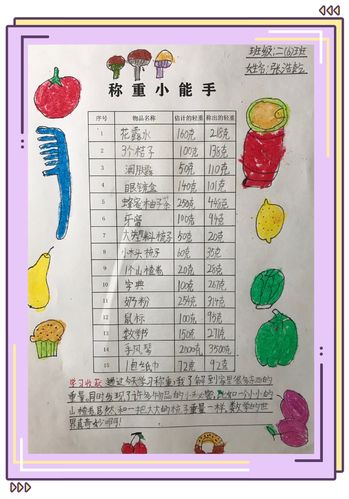 班级:二(6)班
姓名:张浩乾
称重小能手
序号 物品名称 估计的轻重 称出的轻重
1 花露水 160克 218克
2 3个桔子 100克 138克
3 润肤露 50克 110克
4 眼镜盒 140克 101克
5 蜂蜜柚子茶 250克 446克
6 牙膏 100克 94克
7 大塑料梳子 50克 20克
8 小木头梳子 60克 35克
9 1个山楂 20克 26克
10 字典 100克 267克
11 奶粉 250克 314克
12 鼠标 100克 95克
13 数学书 150克 271克
14 手风琴 2000克 3500克
15 1包纸巾 72克 92克
学习收获:通过今天学习称重,我了解到家里很多东西的
重量,同时发现了许多物品的小秘密,比如一个小小的
山楂居然和一把大大的梳子重量一样,数学的世
界真奇妙啊!